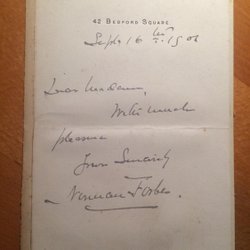 42 BEDFORD SQUARE
Sept 16th 1506
Dear Madam,
With much
pleasure
Yours Sincerely
Norman Forbes